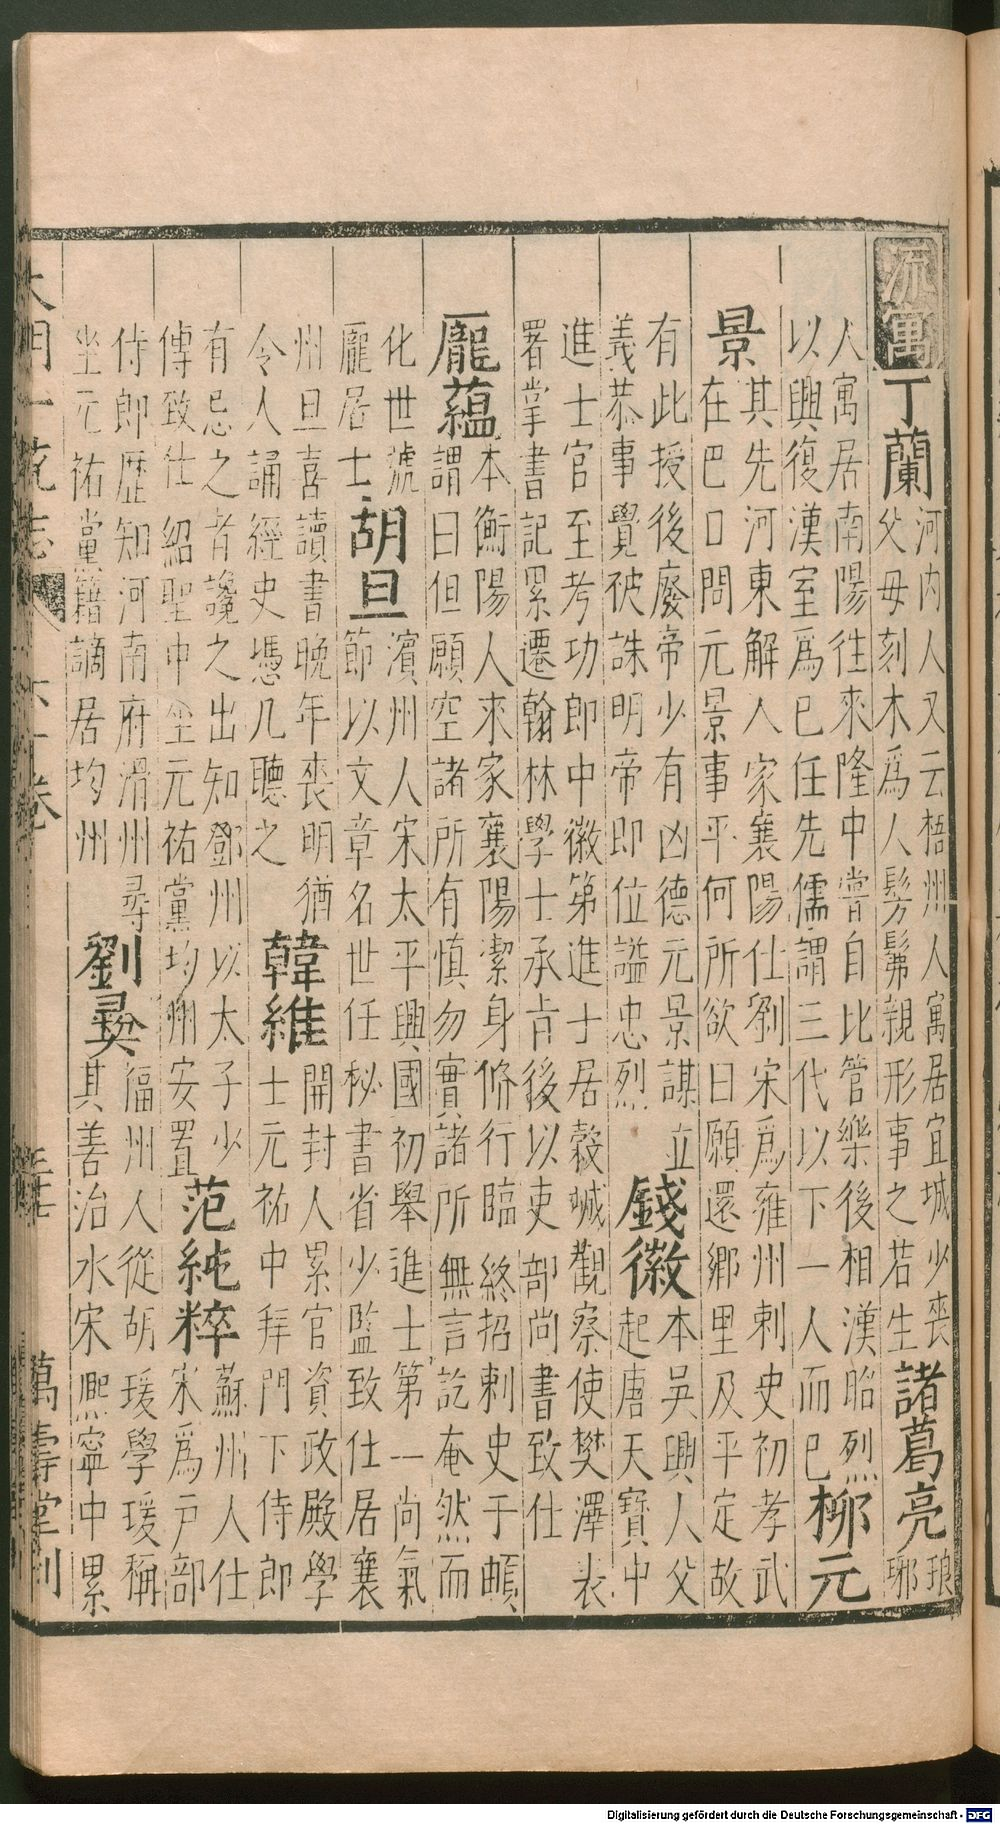 流寓
丁蘭
河内人又云梧州人寓居宜城少丧
父母刻木爲人髣髴親形事之若生
諸葛亮
琅
琊
人寓居南陽往來隆中嘗自比管樂後相漢昭烈
以興復漢室爲已任先儒謂三代以下一人而已
柳元
景
其先河東解人家襄陽仕劉宋爲雍州刺史初孝武
在巴口問元景事平何所欲曰願還鄉里及平定故
有此授後廢帝少有凶德元景謀立
義恭事覺被誅明帝即位謚忠烈
錢徽
本吳興人父
起唐天寶中
進士官至考功郎中徽第進士居穀城觀察使樊澤表
署掌書記累遷翰林學士承旨後以吏部尚書致仕
龐蘊
本衡陽人來家襄陽潔身脩行臨終招刺史于頔
謂曰但願空諸所有慎勿實諸所無言訖奄然而
化世號
龐居士
胡旦
濱州人宋太平興國初舉進士第一尚氣
節以文章名世任秘書省少監致仕居襄
州旦喜讀書晚年丧明猶
令人誦經史憑几聽之
韓維
開封人累官資政殿學
士元祐中拜門下侍郎
有忌之者讒之出知鄧州以太子少
傅致仕紹聖中坐元祐黨均州安置
范純粹
蘇州人仕
宋爲户部
侍郎歷知河南府滑州尋
坐元祐黨籍謫居均州
劉彝
福州人從胡瑗學瑗稱
其善治水宋熈寧中累
大明一統志
萬壽堂刊
Digitalisierung gefördert durch die Deutsche Forschungsgemeinschaft - DFG